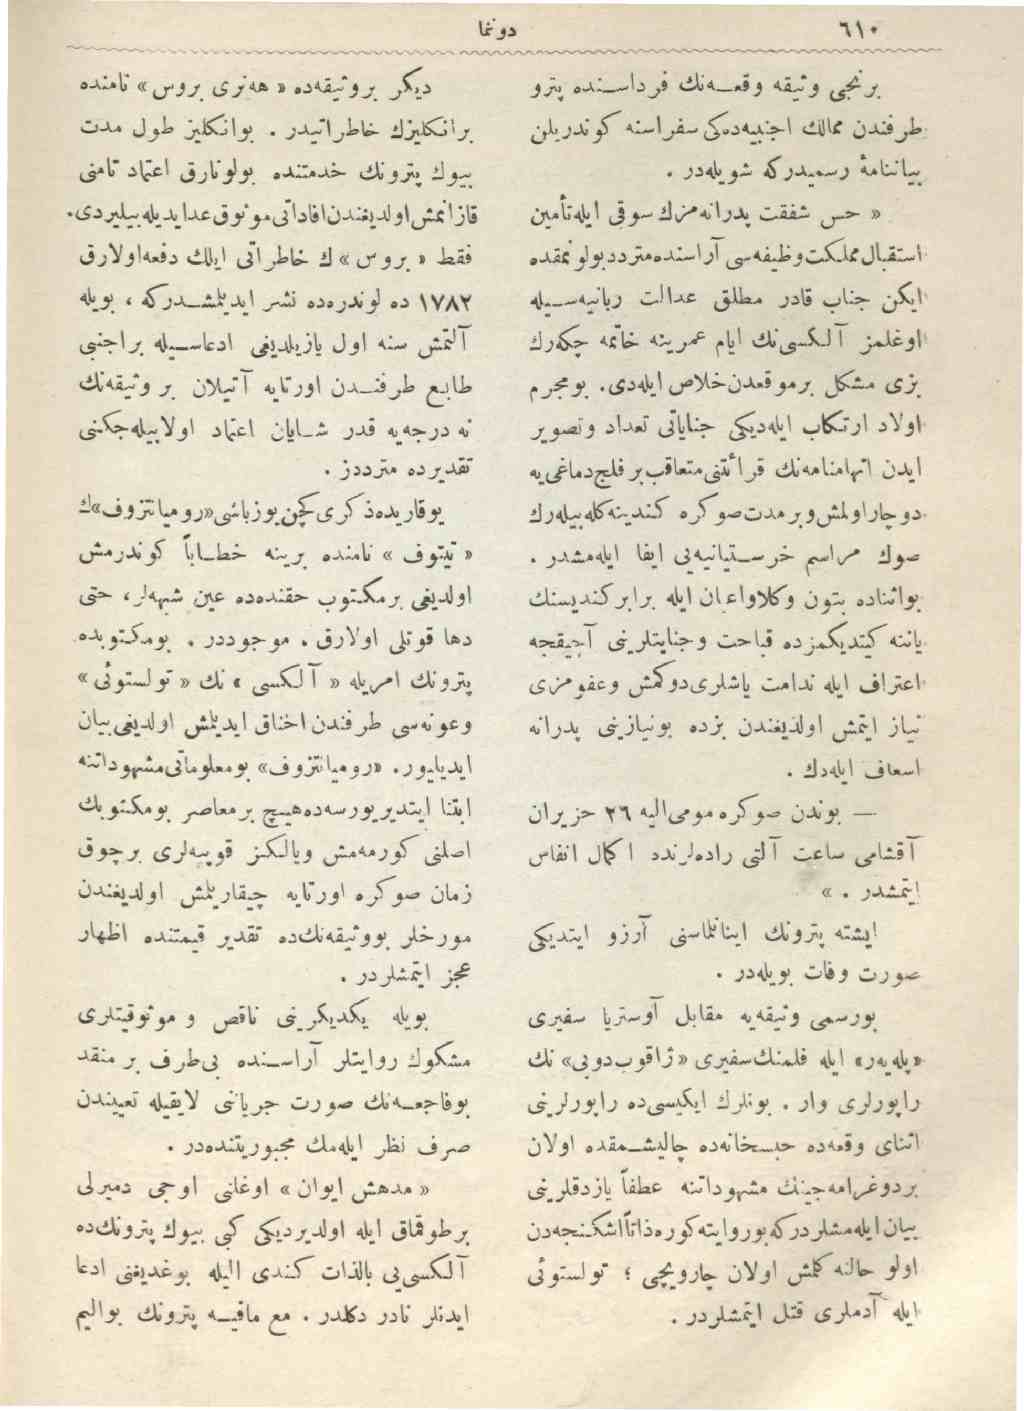 ٦١٠
دونما
برنجی وثیقه وقعه‌نك فرداسنده پترو
طرفندن ممالك اجنبیه‌ده‌کی سفراسنه کوندریلن
بیاننامهٔ رسمیدرکه شویله‌در .
« حس شفقت پدرانه‌مزك سوقی ایله تأمین
استقبال مملکت وظیفه‌سی آراسنده متردد بولونمقده
ایکن جناب قادر مطلق عدالت ربانیه‌سیله
اوغلمز آلکسی‌نك ایام عمرینه خاتمه چکه‌رك
بزی مشکل برموقعدن خلاص ایله‌دی. بومجرم
اولاد ارتکاب ایله‌دیکی جنایاتی تعداد وتصویر
ایدن اتهامنامه‌نك قرائتنی متعاقب بر فلج دماغی‌یه
دوچار اولمش وبر مدت صوکره کندینه کله‌بیله‌رك
صوك مراسم خرستیانیه‌یی ایفا ایله‌مشدر .
بواثناده بتون وکلاواعیان ایله برابر کندیسنك
یاننه کیتدیکمزده قباحت وجنایتلرینی آچیقجه
اعتراف ایله ندامت یاشلری دوکمش وعفومزی
نیاز ایتمش اولدیغندن بزده بونیازینی پدرانه
اسعاف ایله‌دك .
— بوندن صوکره مومی‌الیه ٢٦ حزیران
آقشامی ساعت آلتی راده‌لرنده اکمال انفاس
ایتمشدر . »
ایشته پترونك اینانلماسنی آرزو ایتدیکی
صورت وفات بویله‌در .
بورسمی وثیقه‌یه مقابل آوستریا سفیری
«پله‌یه‌ر» ایله فلمنك سفیری «ژاقوب دوبی» نك
راپورلری وار . بونلرك ایکیسی‌ده راپورلرینی
اثنای وقعه‌ده حبسخانه‌ده چالیشمقده اولان
بردوغرامه‌جینك مشهوداتنه عطفاً یازدقلرینی
بیان ایله‌مشلردرکه بوروایته کوره ذاتاً اشکنجه‌دن
اولو حالنه کلمش اولان چارویچی ؛ تولستوئی
ایله آدملری قتل ایتمشلردر .
دیکر بروثیقه‌ده « هه‌نری بروس » نامنده
برانکلیزك خاطراتیدر . بوانکلیز طول مدت
بیوك پترونك خدمتنده بولونارق اعتماد تامنی
قازانمش اولدیغندن افاداتی موثوق عدایدیله‌بیلیردی.
فقط « بروس » ك خاطراتی ایلك دفعه اولارق
١٧٨٢ ده لوندره‌ده نشر ایدیلمشدرکه ، بویله
آلتمش سنه اول یازیلدیغی ادعاسیله بر اجنبی
طابع طرفندن اورتایه آتیلان بر وثیقه‌نك
نه درجه‌یه قدر شایان اعتماد اولابیله‌جکنی
تقدیرده متر‌ددز .
یوقاریده ذکری کچن یوزباشی «رومیانتزوف»ك
« تیتوف » نامنده برینه خطاباً کوندرمش
اولدیغی برمکتوب حقنده‌ده عین شبهه‌لر، حتی
دها قوتلی اولارق . موجوددر . بومکتوبده
پترونك امریله « آلکسی » نك « تولستوئی »
وعونه‌سی طرفندن اخناق ایدیلمش اولدیغی بیان
ایدیلیور. «رومیانتزوف» بومعلوماتی مشهوداتنه
ابتنا ایتدیریورسه‌ده هیچ برمعاصر بومکتوبك
اصلنی کورمه‌مش ویالکز قوپیه‌لری برچوق
زمان صوکره اورتایه چیقاریلمش اولدیغندن
مورخلر بووثیقه‌نك‌ده تقدیر قیمتنده اظهار
عجز ایتمشلردر .
بویله یکدیکرینی ناقص و موثوقیتلری
مشکوك روایتلر آراسنده بی‌طرف بر منقد
بوفاجعه‌نك صورت جریاننی لایقیله تعییندن
صرف نظر ایله‌مك مجبوریتنده‌در .
« مدهش ایوان » اوغلنی اوجی دمیرلی
برطوقماق ایله اولدیردیکی کبی بیوك پترونك‌ده
آلکسی‌یی بالذات کندی الیله بوغدیغنی ادعا
ایدنلر نادر دکلدر . مع مافیه پترونك بوالیم